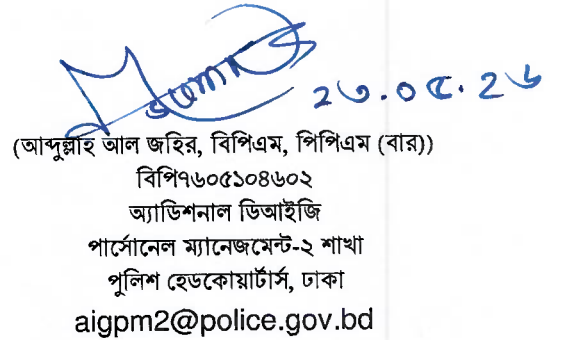 ২৩.০৫.২৬
(আব্দুল্লাহ আল জহির, বিপিএম, পিপিএম (বার))
বিপি৭৬০৫১০৪৬০২
অ্যাডিশনাল ডিআইজি
পার্সোনেল ম্যানেজমেন্ট-২ শাখা
পুলিশ হেডকোয়ার্টার্স, ঢাকা
aigpm2@police.gov.bd